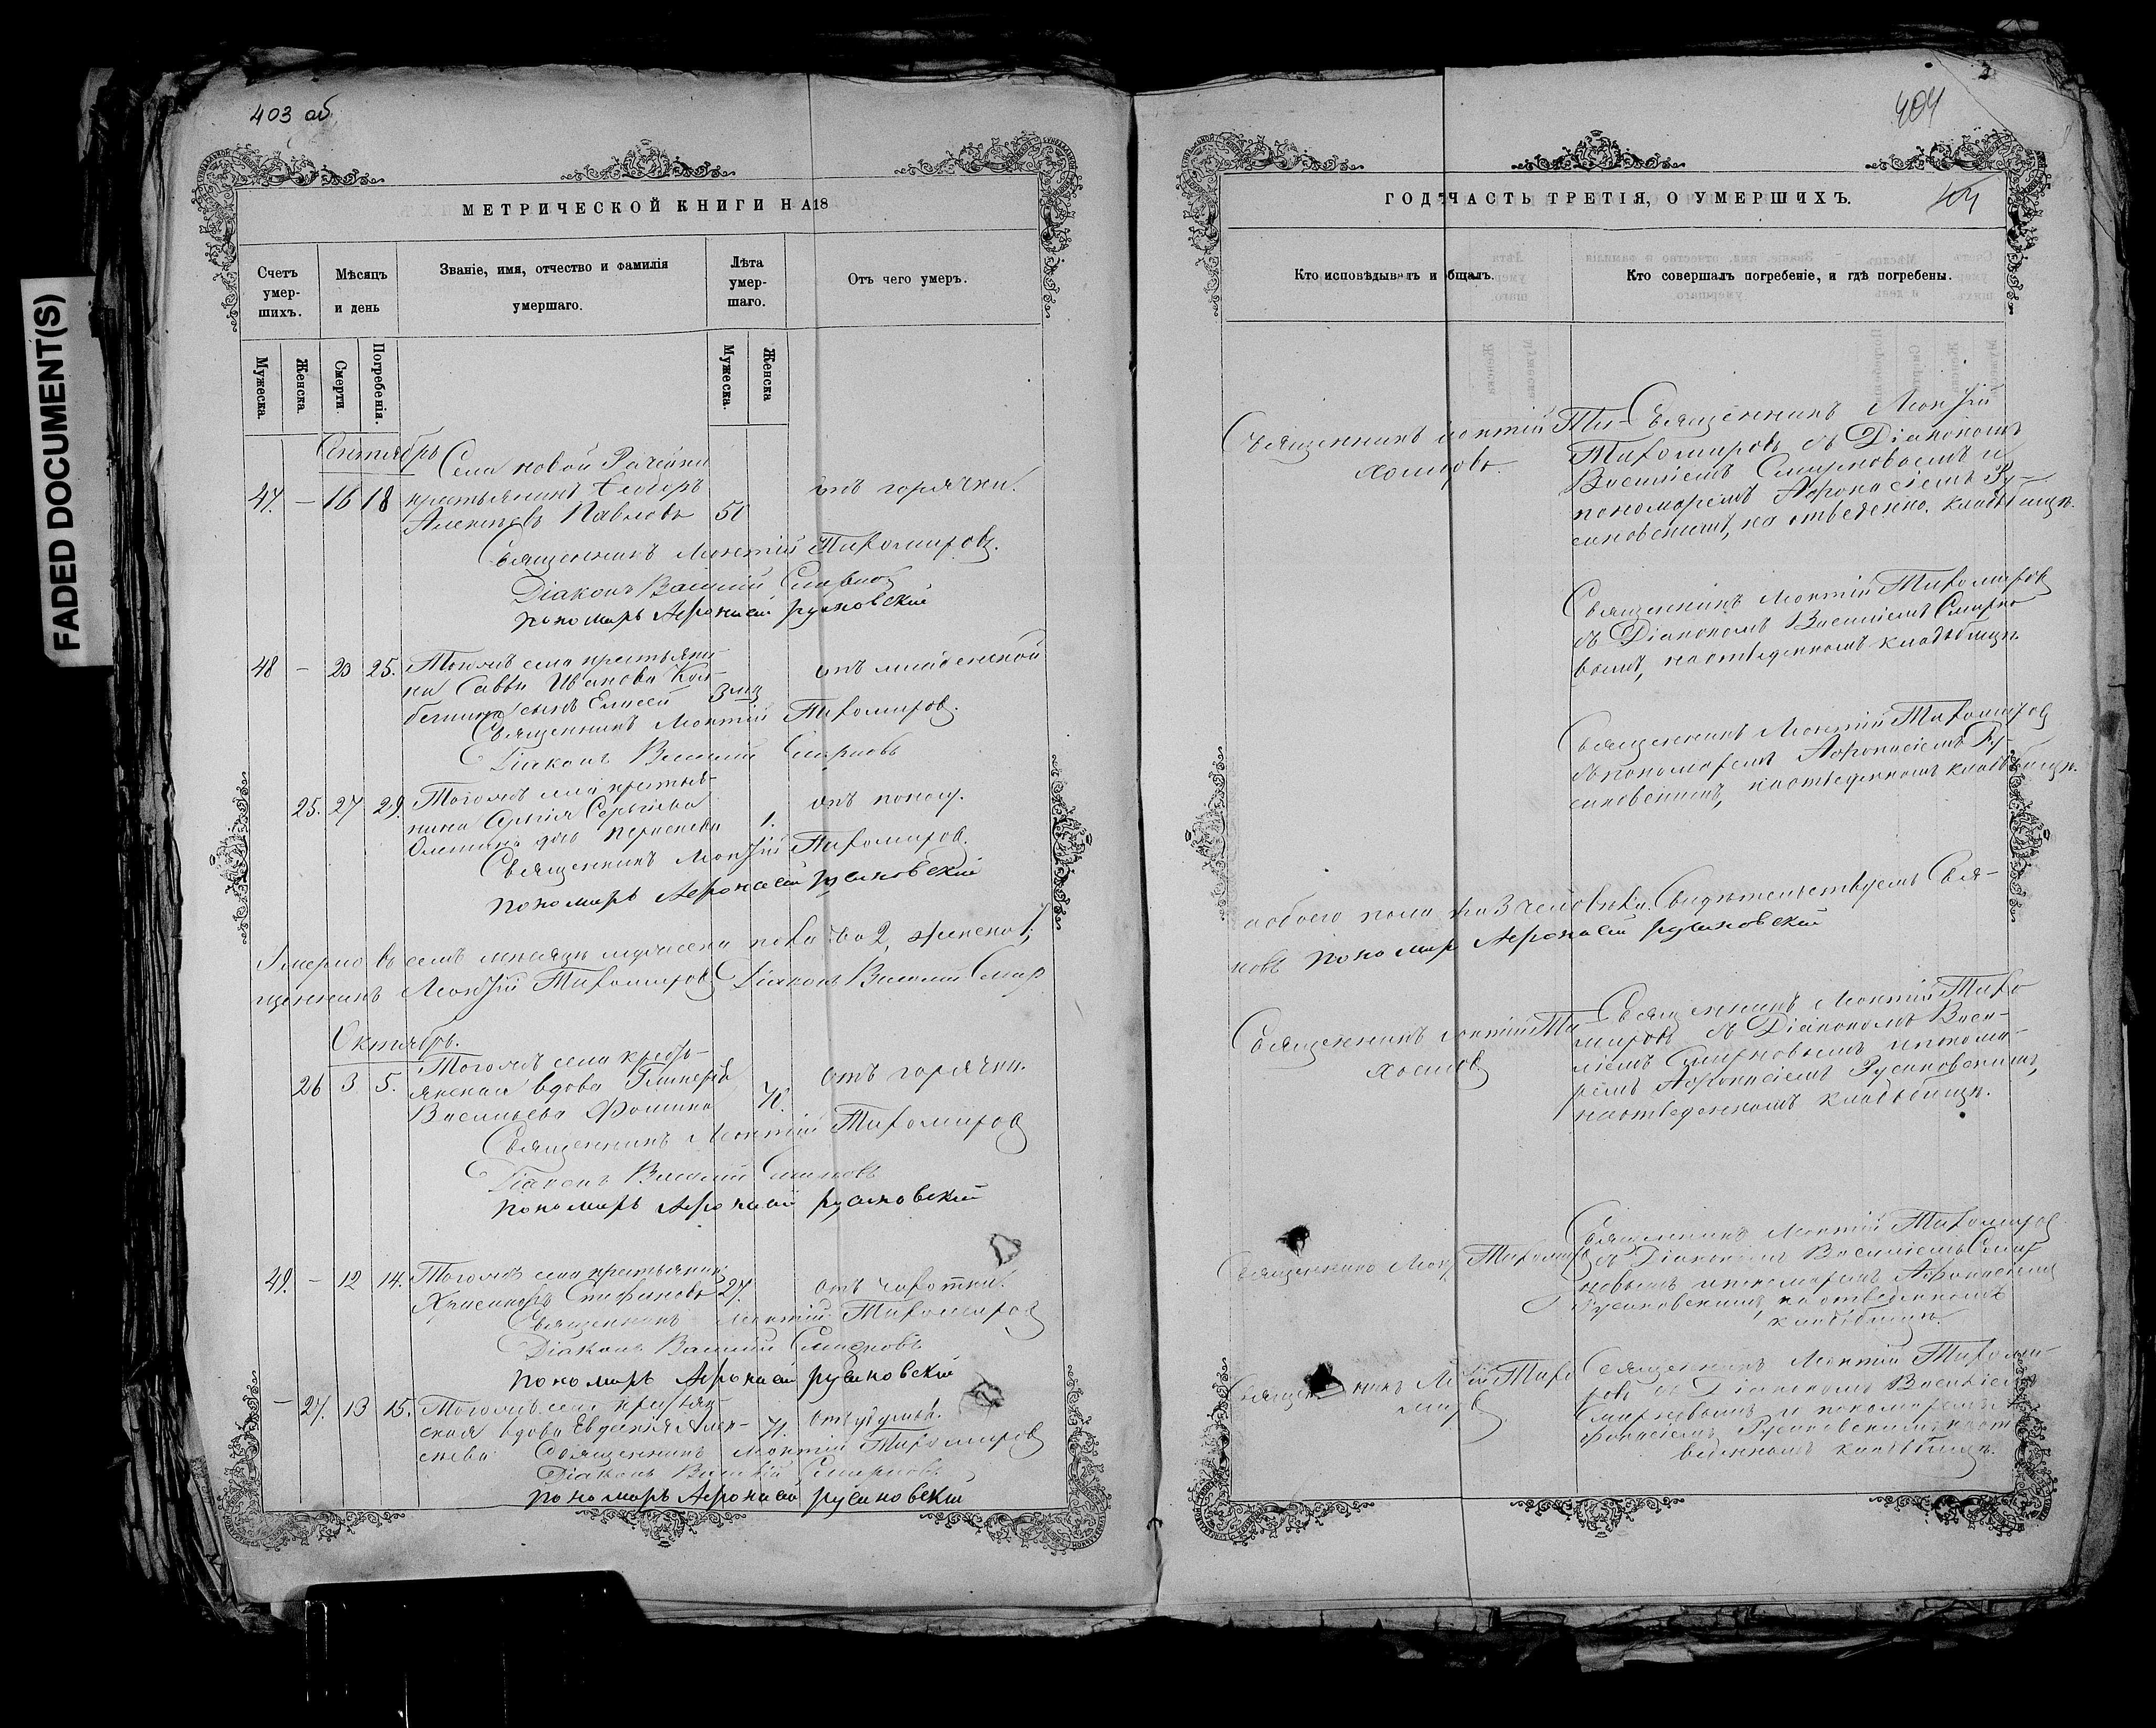 FADED DOCUMENT(S)
403 об
МЕТРИЧЕСКОЙ КНИГИ НА 18
Счетъ умер-шихъ.
Мѣсяцъ и день
Званіе, имя, отчество и фамилія умершаго.
Лѣта умер-шаго.
Отъ чего умеръ.
Мужеска.
Женска
Смерти
Погребенія.
Мужеска.
Женска
Сентябрь
Села новой Рачейки
47. – 16 18 крестьянинъ Ѳеодоръ отъ горячки.
Алексѣевъ Павловъ 50
Священникъ Леонтій Тихомировъ.
Діаконъ Василій Смирновъ
пономарь Афонасій русановский
48 – 20 25. Тогожъ села крестьяни-
на Саввы Иванова отъ младенской
сынъ Елисей 3 мц
Священникъ Леонтій Тихомировъ.
Діаконъ Василій Смирновъ
25. 27 29. Тогожъ села крестья-
нина Сергѣева 1. отъ поносу.
дочь
Священникъ Леонтій Тихомировъ.
пономарь Афонасій русановский
Умерло въ семъ мѣсяцѣ мужеска пола два 2, женска 1,
щенникъ Леонтій Тихомировъ Діаконъ Василій Смир
Октябрь.
Тогожъ села кресть-
26 3 5. янская вдова Гликерія 70. отъ горячки.
Васильева Фомина
Священникъ Леонтій Тихомировъ
Діаконъ Василій Смирновъ
пономарь Афонасій русановский
49. – 12 14. Тогожъ села крестьянинъ
Стефановъ 27. отъ чахотки.
Священникъ Леонтій Тихомировъ
Діаконъ Василій Смирновъ
пономарь Афонасій русановский
– 27. 13 15. Тогожъ села крестьян-
ская вдова Евдокія Алек-
сѣева
Священникъ Леонтій Тихомировъ
Діаконъ Василій Смирновъ
пономарь Афонасій русановский
404
404
ГОДЪ ЧАСТЬ ТРЕТІЯ, О УМЕРШИХЪ.
Кто исповѣдывалъ и общалъ.
Кто совершалъ погребеніе, и гдѣ погребены.
Священникъ Леонтій Ти-
хомировъ.
Священникъ Леонтій
Тихомировъ съ Діакономъ
Василіемъ Смирновымъ и
пономаремъ Афонасіемъ Ру-
сановскимъ, на отведенно. кладбищѣ.
Священникъ Леонтій Тихомировъ
съ Діакономъ Василіемъ Смирно
вымъ, на отведенномъ кладбищѣ.
Священникъ Леонтій Тихомировъ
съ пономаремъ Афонасіемъ Ру-
сановскимъ, на отведенномъ кладбищѣ.
а обоего пола три 3 человѣка. Свидѣтельствуемъ Свя-
новъ пономарь Афонасій русановский
Священникъ Леонтій Ти-
хомировъ
Священникъ Леонтій Тихо
мировъ съ Діакономъ Васи-
ліемъ Смирновымъ и понома-
ремъ Афонасіемъ Русановскимъ,
на отведенномъ кладбищѣ.
Священникъ Леон Тихомировъ
Священникъ Леонтій Тихомировъ
съ Діакономъ Василіемъ Смир
новымъ и пономаремъ Афонасіемъ
Русановскимъ, на отведенномъ
кладбищѣ.
Священникъ Ле тій Тихо
миров
Священникъ Леонтій Тихоми-
ровъ съ Діакономъ Василіемъ
Смирновымъ и пономаремъ А
фонасіемъ Русановскимъ на от
веденномъ кладбищѣ.